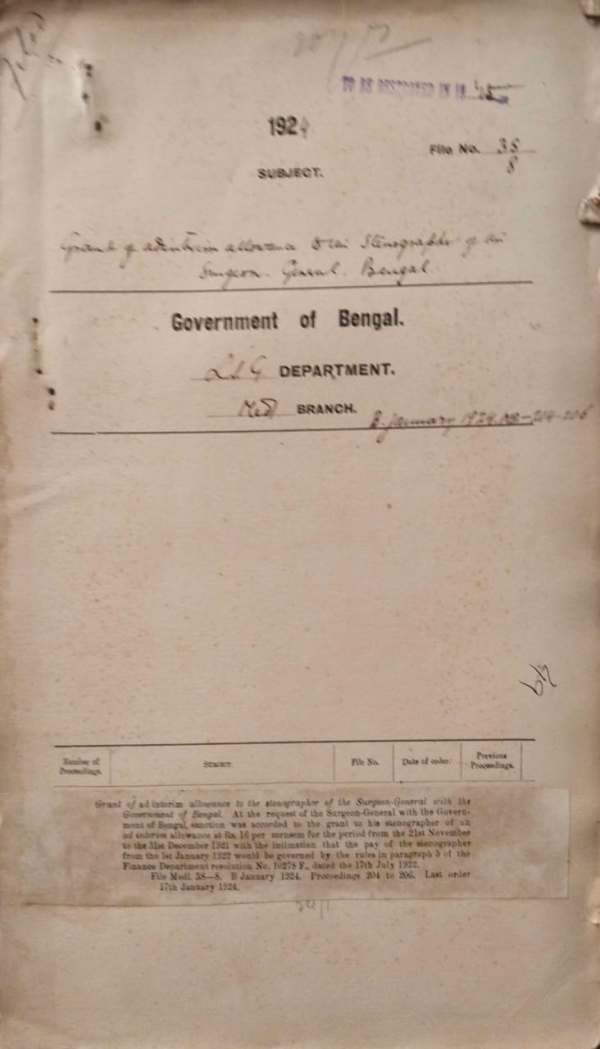 TO BE DESTROYED IN 19
1924
File No. 38
8
SUBJECT.
Grant of ad interim allowance to the Stenographer of the
Surgeon-General, Bengal.
Government of Bengal.
L.S.G DEPARTMENT.
Med BRANCH.
B. January 1924. No-204-206
Number of Proceedings.
SUBJECT.
File No.
Date of order.
Previous Proceedings.
Grant of ad interim allowance to the stenographer of the Surgeon-General with the
Government of Bengal. At the request of the Surgeon-General with the Govern-
ment of Bengal, sanction was accorded to the grant to his stenographer of an
ad interim allowance at Rs. 16 per mensem for the period from the 21st November
to the 31st December 1921 with the intimation that the pay of the stenographer
from the 1st January 1922 would be governed by the rules in paragraph 5 of the
Finance Department resolution No. 10278 F., dated the 17th July 1922.
File Medl. 38—8. B January 1924. Proceedings 204 to 206. Last order
17th January 1924.